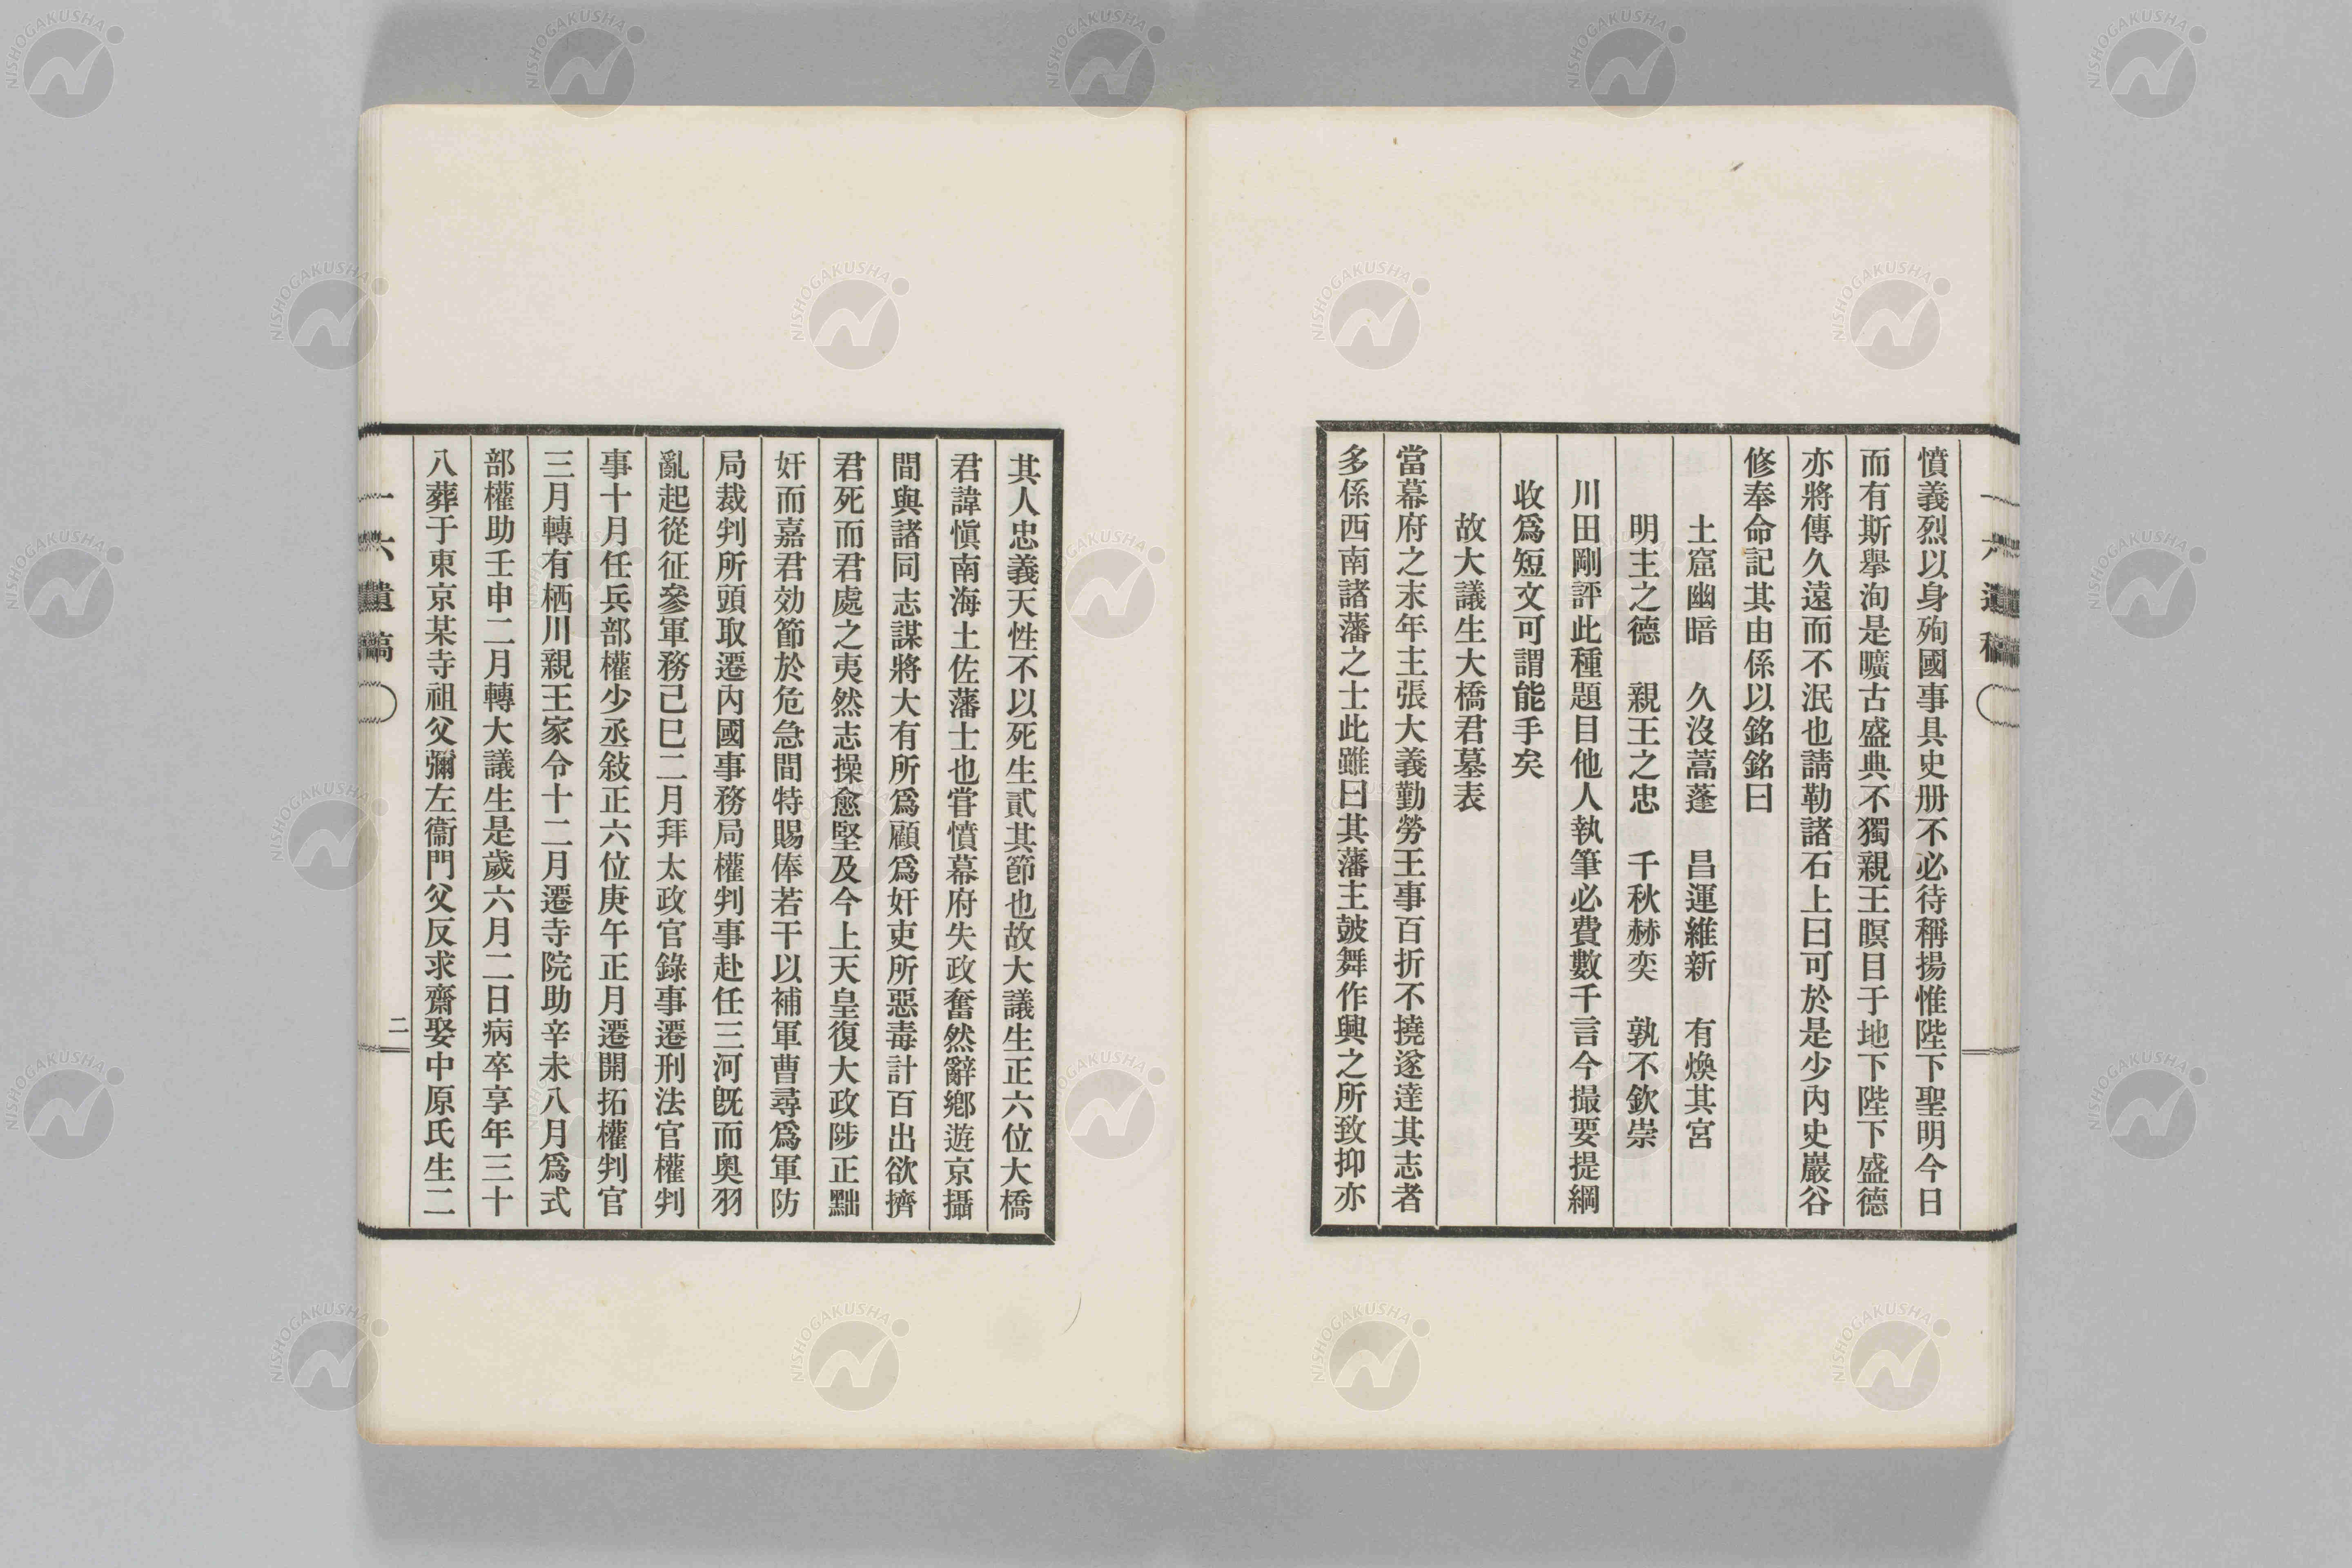 憤義烈以身殉國事具史册不必待稱揚惟陛下聖明今日
而有斯擧洵是曠古盛典不獨親王瞑目于地下陛下盛德
亦將傳久遠而不泯也請勒諸石上曰可於是少內史巖谷
修奉命記其由係以銘銘曰
土窟幽暗　久沒蒿蓬　昌運維新　有煥其宮
明主之德　親王之忠　千秋赫奕　孰不欽崇
川田剛評此種題目他人執筆必費數千言今撮要提綱
收爲短文可謂能手矣
故大議生大橋君墓表
當幕府之末年主張大義勤勞王事百折不撓遂達其志者
多係西南諸藩之士此雖曰其藩主鼓舞作興之所致抑亦
其人忠義天性不以死生貳其節也故大議生正六位大橋
君諱愼南海土佐藩士也甞憤幕府失政奮然辭鄉遊京攝
間與諸同志謀將大有所爲顧爲奸吏所惡毒計百出欲擠
君死而君處之夷然志操愈堅及今上天皇復大政陟正黜
奸而嘉君効節於危急間特賜俸若干以補軍曹尋爲軍防
局裁判所頭取遷內國事務局權判事赴任三河既而奧羽
亂起從征參軍務己巳二月拜太政官錄事遷刑法官權判
事十月任兵部權少丞敍正六位庚午正月遷開拓權判官
三月轉有栖川親王家令十二月遷寺院助辛未八月爲式
部權助壬申二月轉大議生是歲六月二日病卒享年三十
八葬于東京某寺祖父彌左衞門父反求齋娶中原氏生二
一六遺稿
二